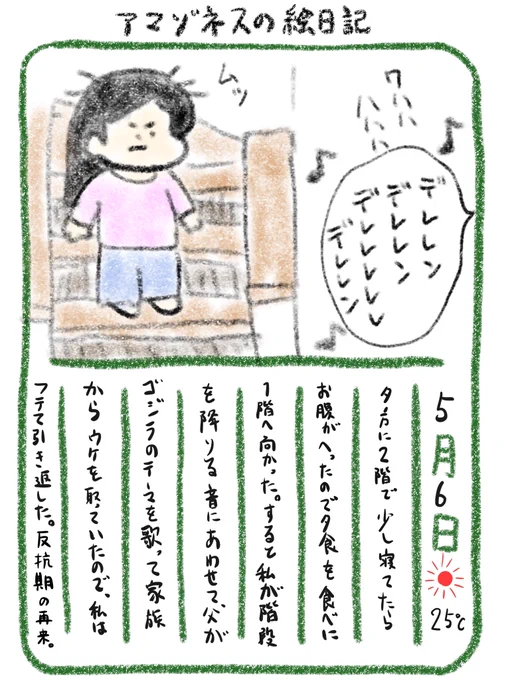 アマゾネスの絵日記
ムッ
ワハハ
ハハハ
デレレン
デレレン
デレレレレレ
デレレン
5月6日
25℃
夕方に2階で少し寝てたら
お腹がへったので夕食を食べに
1階へ向かった。すると私が階段
を降りる音にあわせて、父が
ゴジラのテーマを歌って家族
からウケを取っていたので、私は
フテて引き返した。反抗期の再来。